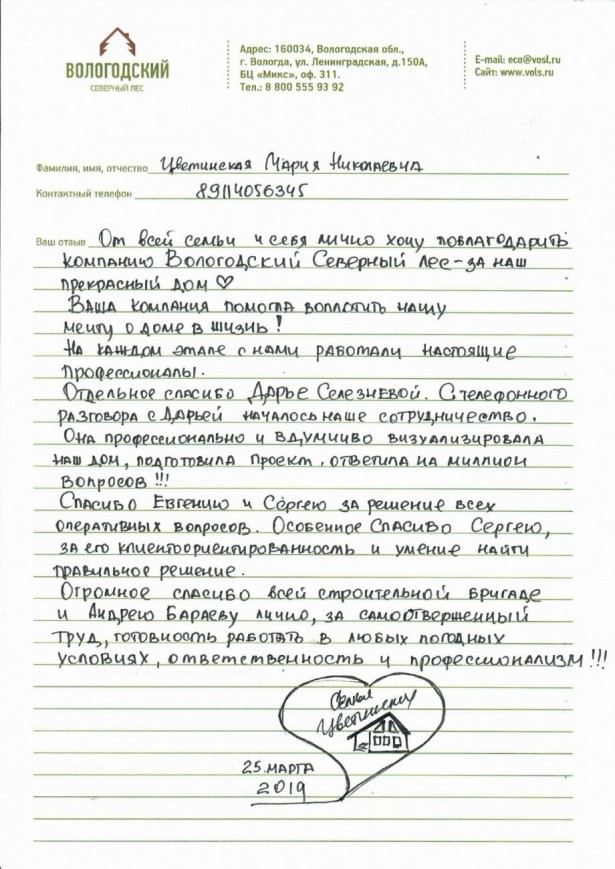 ВОЛОГОДСКИЙ
СЕВЕРНЫЙ ЛЕС
Адрес: 160034, Вологодская обл.,
г. Вологда, ул. Ленинградская, д.150А,
БЦ «Микс», оф. 311.
Тел.: 8 800 555 93 92
E-mail: eco@vosl.ru
Сайт: www.vols.ru
Фамилия, имя, отчество Цветинская Мария Николаевна
Контактный телефон 89114056345
Ваш отзыв От всей семьи и себя лично хочу поблагодарить
компанию Вологодский Северный лес - за наш
прекрасный дом ♡
Ваша компания помогла воплотить нашу
мечту о доме в жизнь!
На каждом этапе с нами работали настоящие
профессионалы.
Отдельное спасибо Дарье Селезневой. С телефонного
разговора с Дарьей началось наше сотрудничество.
Она профессионально и вдумчиво визуализировала
наш дом, подготовила проект, ответила на миллион
вопросов !!!
Спасибо Евгению и Сергею за решение всех
оперативных вопросов. Особенное спасибо Сергею,
за его клиентоориентированность и умение найти
правильное решение.
Огромное спасибо всей строительной бригаде
и Андрею Бараеву лично, за самоотверженный
труд, готовность работать в любых погодных
условиях, ответственность и профессионализм!!!
Семья
Цветинских
25.марта
2019